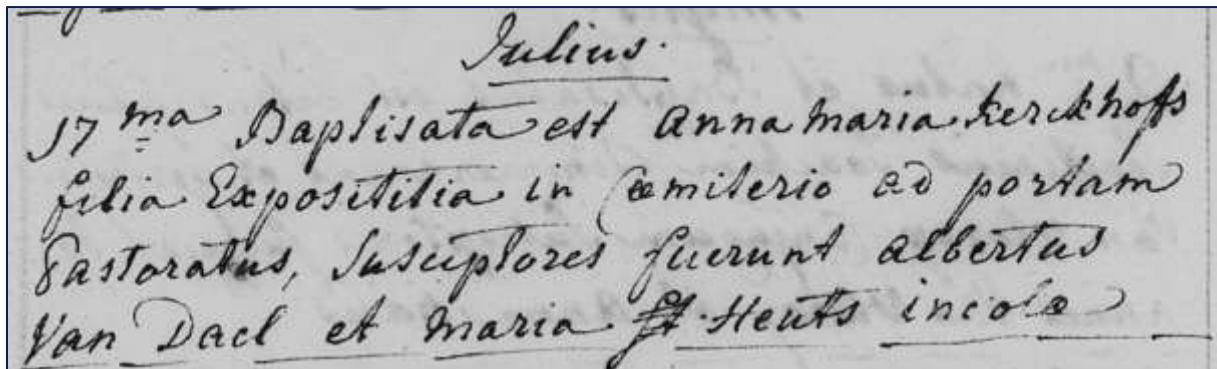 Julius.
17 ma Baptisata est Anna Maria Kerckhoffs
filia Exposititia in Cœmiterio ad portam
Pastoratus, Susceptores fuerunt Albertus
Van Dael et Maria Heuts incolæ